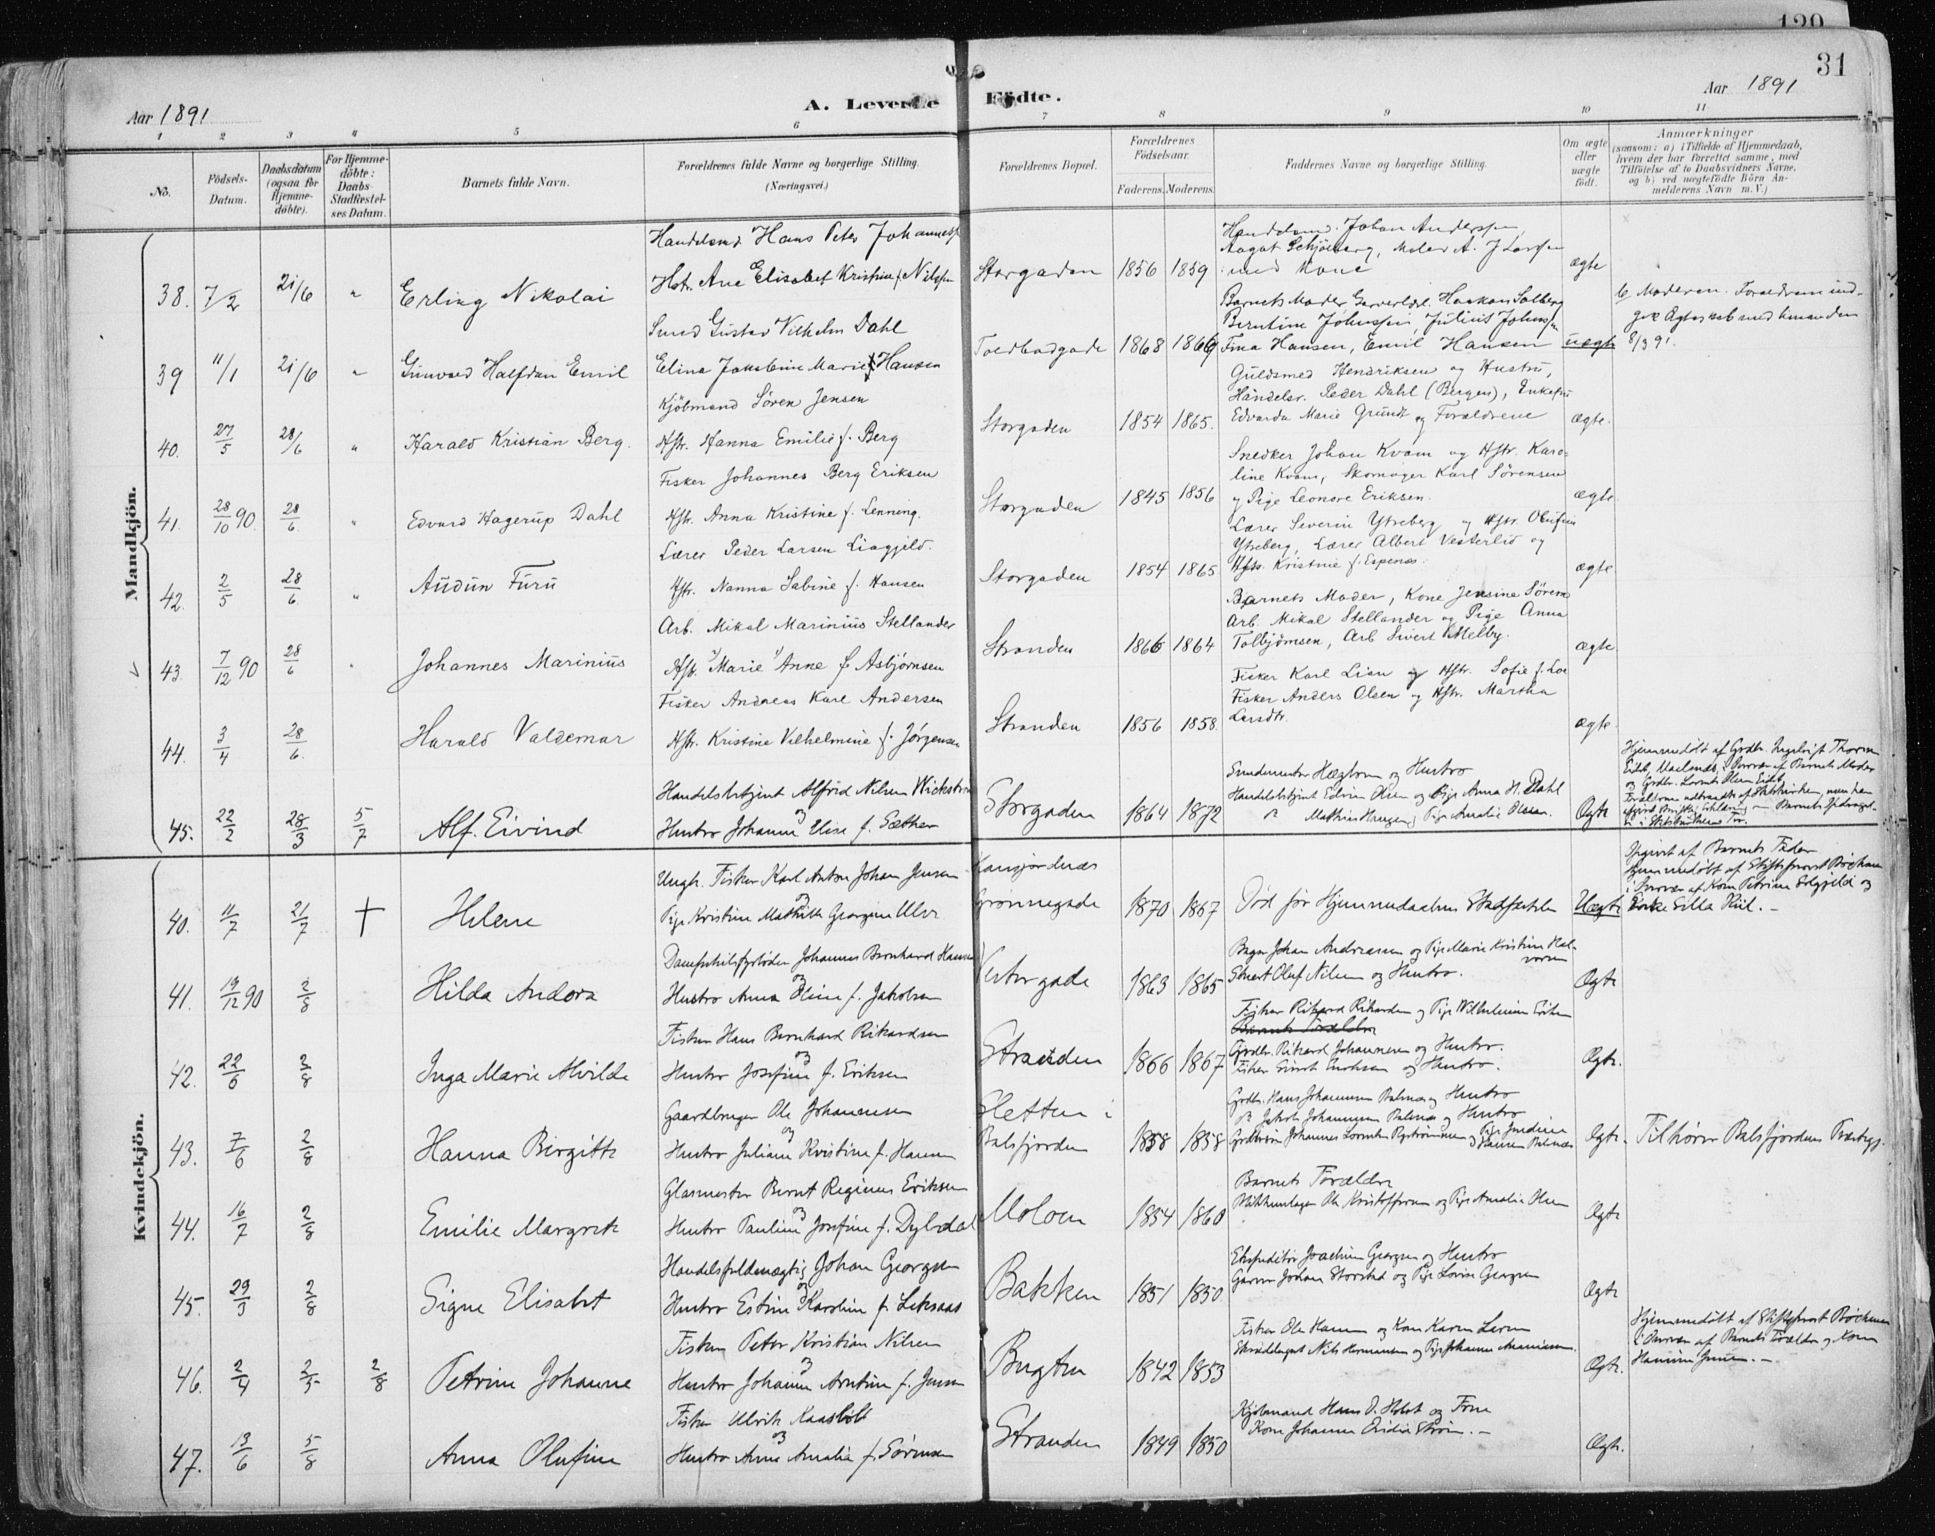 120
31
Aar 1891
A. Levende Fødte.
Aar 1891
1 2 3 4 5 6 7 8 9 10 11
No.
Fødsels-Datum.
Daabsdatum (ogsaa for Hjemme-døbte).
For Hjemme-døbte: Daabs-Stadfæstel-ses Datum.
Barnets fulde Navn.
Forældrenes fulde Navne og borgerlige Stilling.
(Næringsvei.)
Forældrenes Bopæl.
Forældrenes Fødselsaar.
Faderens. Moderens.
Faddernes Navne og borgerlige Stilling.
Om ægte eller uægte født.
Anmærkninger
(saasom: a) i Tilfælde af Hjemmedaab,
hvem der har forrettet samme, med
Tilføielse af to Daabsvidners Navne,
og b) ved uægtefødte Børn An-
melderens Navn m. V.)
Mandkjøn.
Handelsmd Hans Peter Johanness
Hstr. Ane Elisabet Kristine f. Nilssen
38. 7/2 21/6 " Erling Nikolai
Storgaden 1856 1859
Handelsmd. Johan Anderssen,
Aagot Schjølberg, Maler A. J Larssen
med Kone
ægte
Smed Gustav Vilhelm Dahl
Elina Jakobine Marie Hansen
39 11/1 21/6 " Gunvald Halfdan Emil
Toldbodgade 1868 1869
Barnets Moder Garverlærl. Haakon Solberg
Berntine Johnssen, Julius Johnss
Fina Hansen, Emil Hansen
uægte
b/ Moderen. Forældrene ind-
gik Ægteskab med hinanden
8/3 91.
Kjøbmand Søren Jensen
Hstr. Hanna Emilie f. Berg
40. 27/5 28/6 " Harald Kristian Berg.
Storgaden 1854 1865.
Guldsmed Hendriksen og Hustru,
Handelsr. Peder Dahl (Bergen), Enkefru
Edvarda Marie Grundt og Forældrene
ægte.
Fisker Johannes Berg Eriksen
Hstr. Anna Kristine f. Lenning.
41. 28/10 90. 28/6. " Edvard Hagerup Dahl
Storgaden 1845 1856
Snedker Johan Kvam og Hstr. Karo-
line Kvam, Skomager Karl Sørensen
og Pige Leonore Eriksen.
ægte.
Lærer Peder Larsen Liagjeld.
Hstr. Nanna Sabine f. Hansen
42. 2/5 28/6. " Audun Furu
Storgaden 1854 1865
Lærer Severin Ytreberg og Hstr. Olufine
Ytreberg, Lærer Albert Vesterlid og
Hstr. Kristine f. Espenæs.
ægte
Arb. Mikal Marinius Stellander
Hstr. Marie Anne f. Asbjørnsen
43. 7/12 90 28/6 " Johannes Marinius
Stranden 1866 1864
Barnets Moder, Kone Jensine Sørens
Arb. Mikal Stellander og Pige Anna
Tolbjømsen, Arb Sivert Melby.
ægte
Fisker Andreas Karl Andersen
Hstr. Kristine Vilhelmine f. Jørgensen
44. 3/4 28/6. Harald Valdemar
Stranden 1856 1858.
Fisker Karl Lian og Hstr. Sofie f. Lor
Fisker Anders Olsen og Hstr. Martha
Larsdtr.
ægte.
Handelsbetjent Alfred Nilsen Wickstrøm
og
Hustro Johanna Elise f. Sæther
45. 22/2 28/3 5/7 Alf. Eivind
Storgaden 1864 1872
Sundmester Hægstrøm og Hustro
Handelsbetjent Edvin Olsen og Pige Anna H. Dahl
Mathias Haugen, Pige Amalie Olsen.
Ægte
Hjemmedøbt af Grdbr. Ingebrigt Thoresen
Eidet, Malands, i Nærvær af Barnets Moder
og Grdbr. Lornts Olsen Eidet
Kvindekjøn.
Ungk. Fisker Karl Anton Johan Jensen
og
Pige Kristine Mathilde Georgine Ulve
40. 11/7 21/7 † Helene
Kansjordnæs
Grønnegade 1870 1867 Død før Hjemmedaabens Stadfæstelse Uægte
Opgivet af Barnets Fader
Hjemmedøbt af Stiftsprovst Bøckman
i Nærvær af Kone Petrine Solgjeld og
Enke Silla Kiil. –
Dampskibsfyrbøder Johannes Bernhard Hansen
og
Hustro Anna Oline f. Jakobsen
41. 19/12 90 2/8 Hilda Andora
Vestregade 1863 1865
Bager Johan Andreassen og Pige Marie Kristine Hal-
vorsen
Skoert Oluf Nilsen og Hustro.
Ægte
Fisker Hans Bernhard Rikardsen
og
Hustro Josefine f. Eriksen
42. 22/6 2/8 Inga Marie Alvilde
Stranden 1866 1867
Fisker Rikard Rikardsen og Pige Wilhelmine Eriksen
Barnets Forældre
Grdbr. Rikard Johannesen og Hustro.
Fisker Sivert Enoksen og Hustro.
Ægte.
Gaardbruger Ole Johannesen
og
Hustro Juliane Kristine f. Hansen
43. 7/6 2/8 Hanna Birgitte
Sletten i
Balsfjorden 1858 1858
Grdbr. Hans Johannesen Balsnes og Hustro
Jakob Johannesen Balsnes og Hustro
Ægte. Tilhører Balsfjordens Præstegj.
Glarmester Bernt Reginus Eriksen
og
Hustro Pauline Josefine f. Dybdal
44. 16/7 2/8 Emilie Margrete
Moloen 1854 1860
Barnets Forældre
Blikkenslager Ole Kristoffersen og Pige Amalie Olsen
Ægte
Handelsfuldmægtig Johan Georgsen
og
Hustro Estine Karoline f. Leksaas
45. 29/3 2/8 Signe Elisabet
Bakken 1851 1850
Ekspeditør Joachim Georgsen og Hustro
Garver Johan Storstad og Pige Lovise Georgsen
Ægte
Fisker Peter Kristian Nilsen
og
Hustro Johanna Arntine f. Jensen
46. 2/4 2/5 2/8 Petrine Johanne
Bugten 1842 1853
Fisker Ole Hansen og Kone Karen Larsen
Skræddersvd Nils Hermansen og Pige Johanna Ananiassen.
Ægte.
Hjemmedøbt af Stiftsprovst Bøckman
i Nærvær af Barnets Forældre og Kone
Hansine Jensen. –
Fisker Ulrik Kaasbøll
og
Hustro Anne Amalie f. Sørensen
47. 13/6 5/8 Anna Olufine
Stranden 1849 1850
Kjøbmand Hans D. Holst og Frue
Kone Johanna Eridia Strøm. –
Ægte.